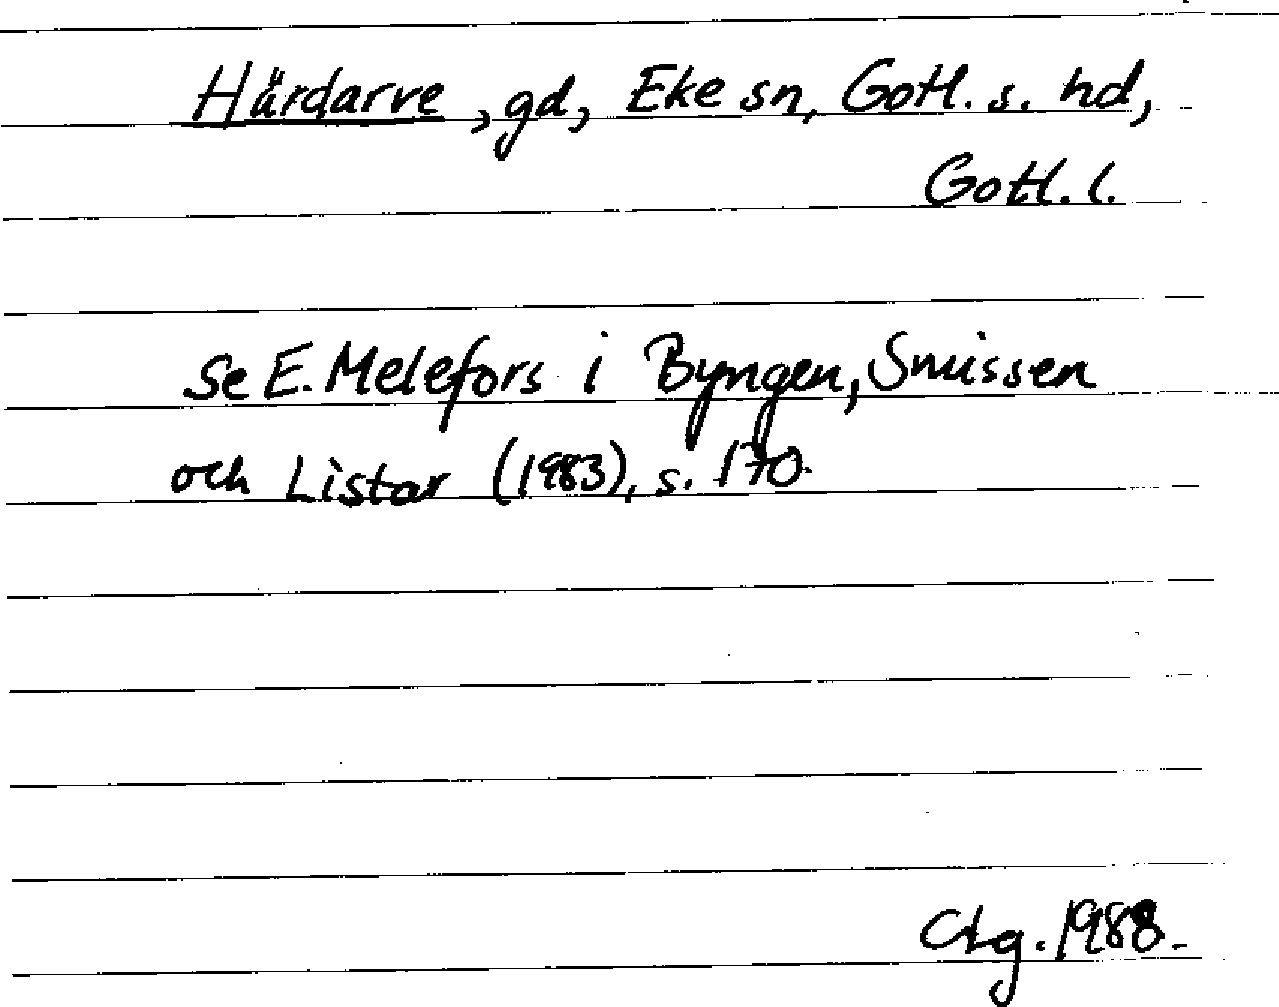 Härdarve, gd, Eke sn, Gotl. s. hd,
Gotl. l.
Se E. Melefors i Byngen, Smissen
och Listar (1983), s. 170.
CLg. 1988.